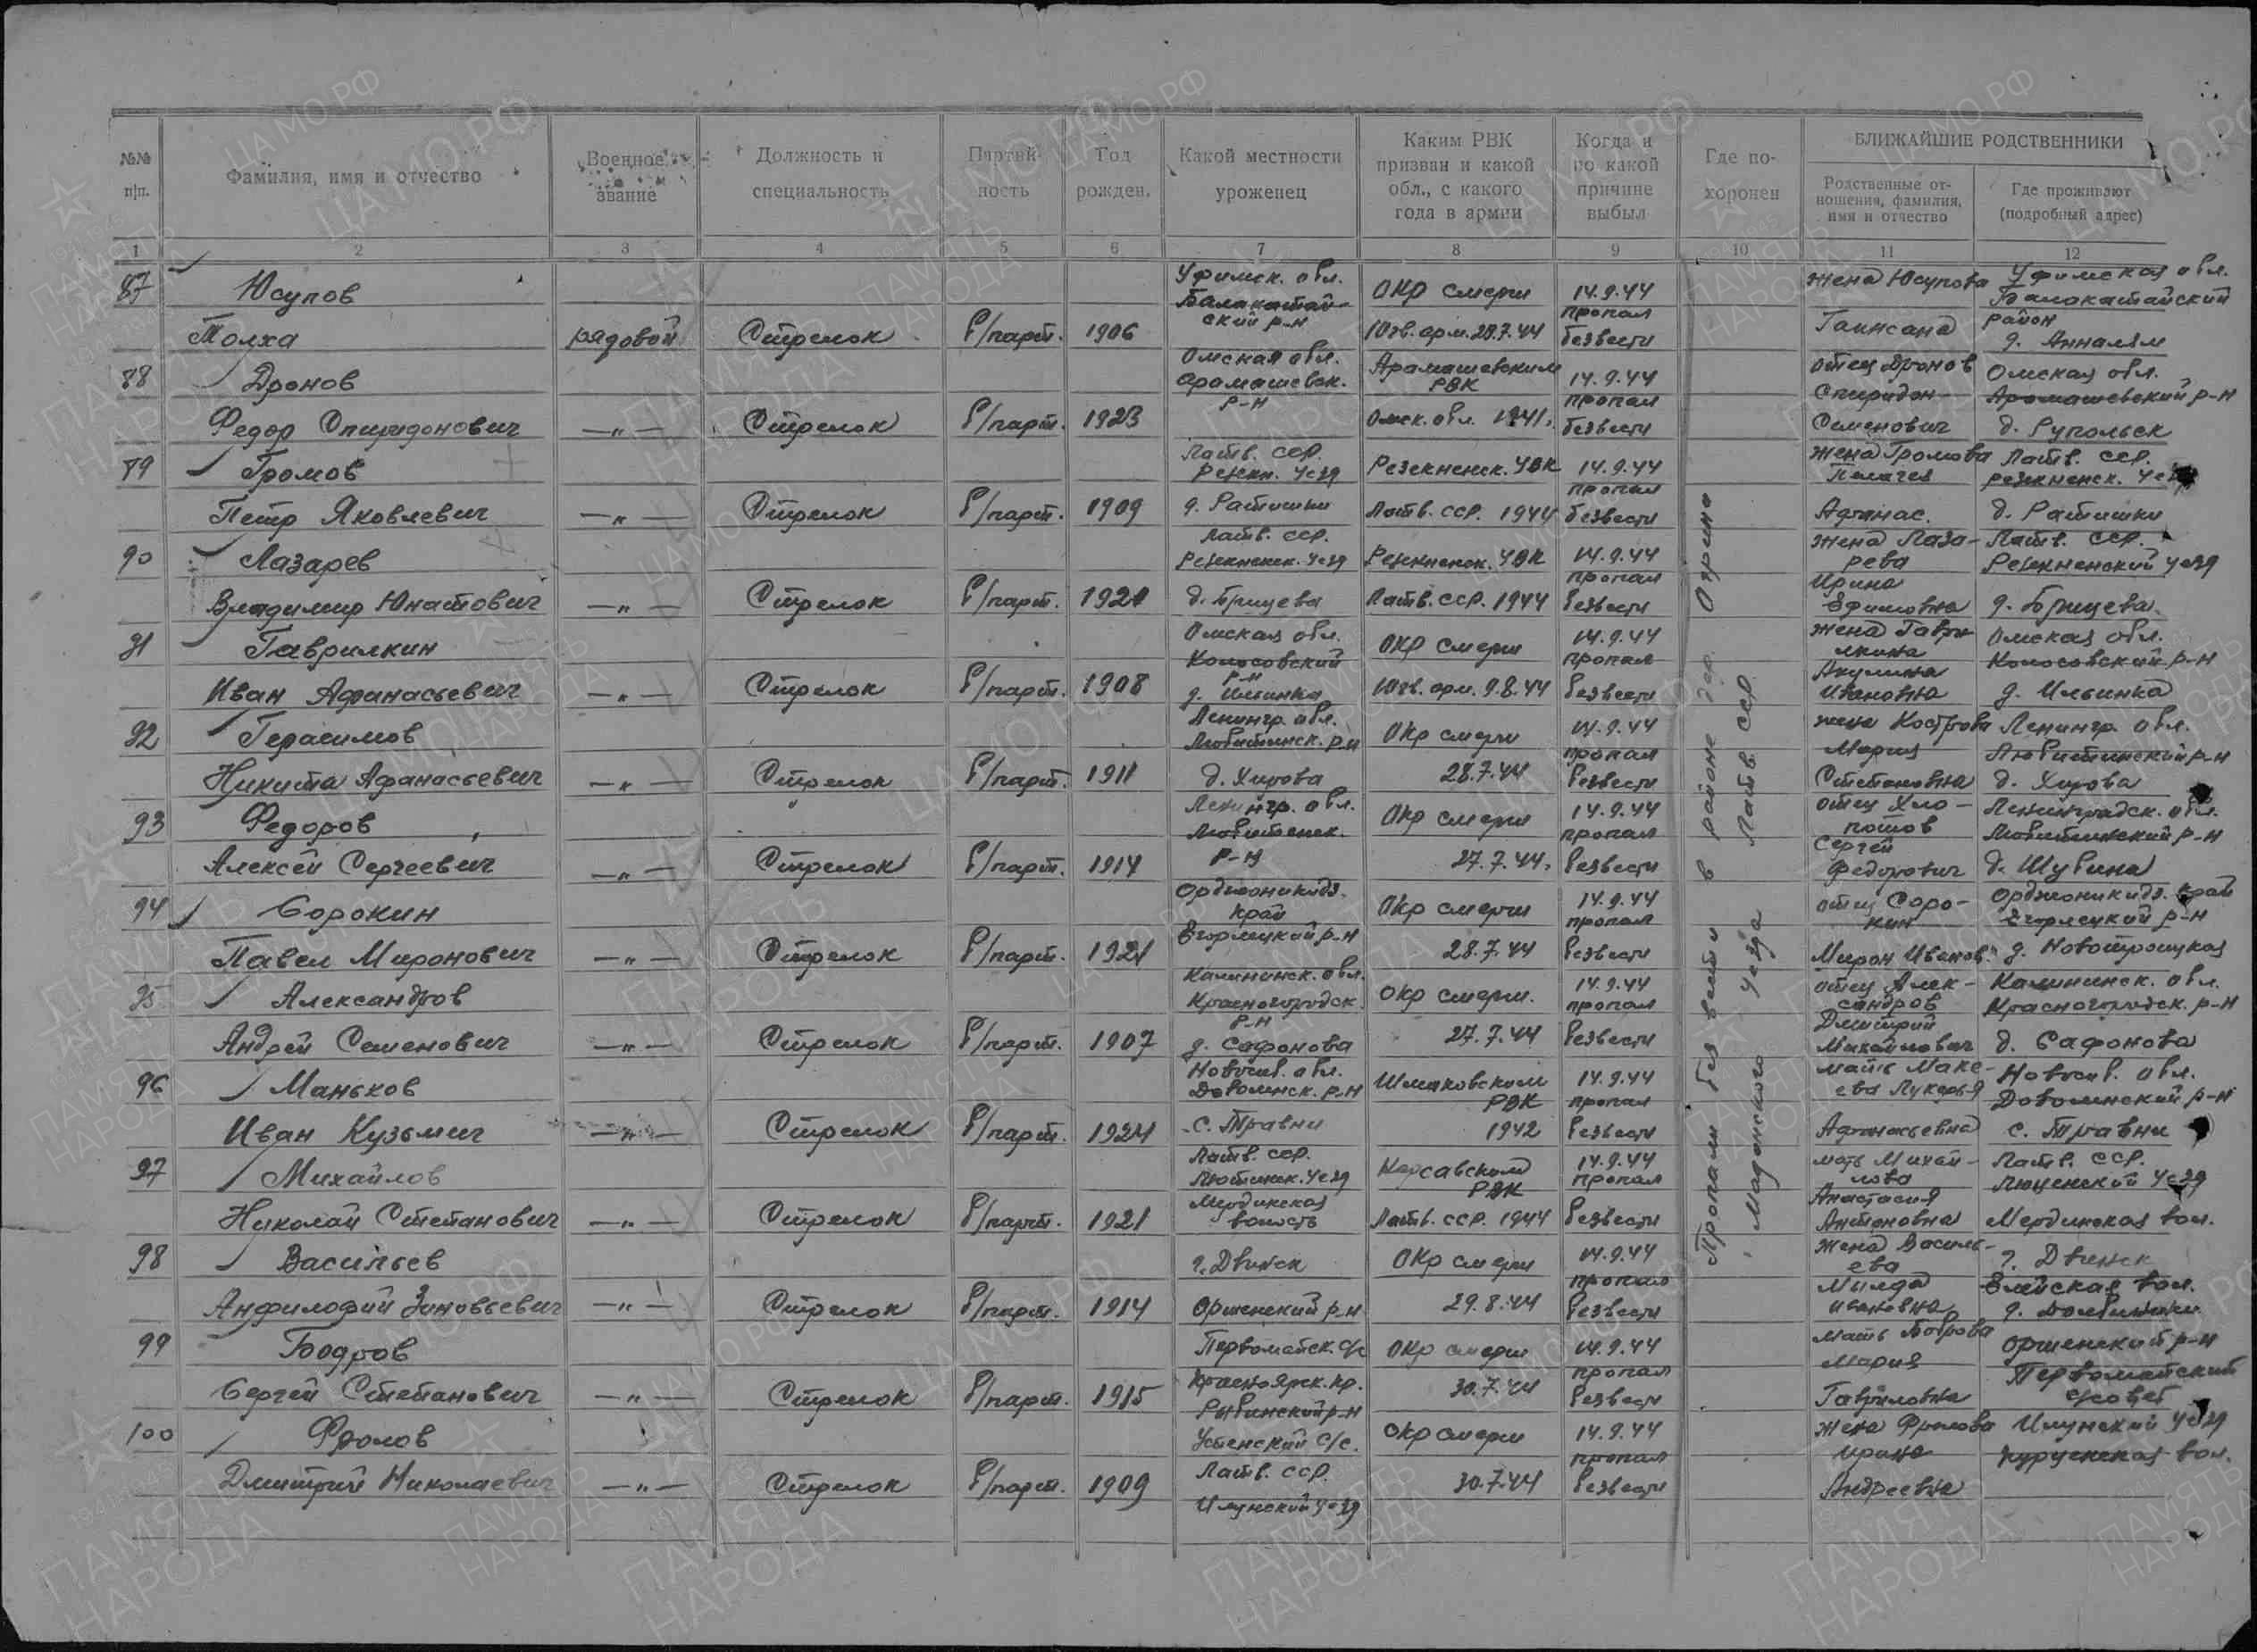 №№ п/п.
Фамилия, имя и отчество
Военное звание
Должность и специальность
Партийность
Год рожден.
Какой местности уроженец
Каким РВК призван и какой обл., с какого года в армии
Когда и по какой причине выбыл
Где похоронен
БЛИЖАЙШИЕ РОДСТВЕННИКИ
Родственные отношения, фамилия, имя и отчество
Где проживают (подробный адрес)
1 2 3 4 5 6 7 8 9 10 11 12
87 Юсупов Уфимск. обл. Балакатайский р-н ОКР смерш 14.9.44 пропал жена Юсупова Уфимская обл. Балакатайский район
Толха рядовой Стрелок Б/парт. 1906 10гв. арм. 20.7.44 безвести Гаинсана д. Анналям
88 Дронов Омская обл. Аромашевск. р-н Арамашевским РВК 14.9.44 пропал отец Дронов Омская обл.
Федор Спиридонович —„— Стрелок Б/парт. 1923 Омск. обл. 1941. безвести Спиридон Семенович Аромашевский р-н д. Рупольск
89 Громов Латв. ССР. Резекн. уезд Резекненск. УВК 14.9.44 пропал жена Громова Пелагея Латв. ССР. резекненск. уезд
Петр Яковлевич —„— Стрелок Б/парт. 1909 д. Ратишки Латв. ССР. 1944 безвести Афанас. д. Ратишки
90 Лазарев Латв. ССР. Резекненск. уезд Резекненск. УВК 14.9.44 пропал жена Лазарева Латв. ССР. Резекненский уезд
Владимир Юнатович —„— Стрелок Б/парт. 1921 д. Брицева Латв. ССР. 1944 безвести Ирина Ефимовна д. Брицева
91 Гаврилкин Омская обл. Колосовский р-н ОКР смерш 14.9.44 пропал жена Гаврилкина Омская обл. Колосовский р-н
Иван Афанасьевич —„— Стрелок Б/парт. 1908 д. Ильинка 10гв. арм. 9.8.44 безвести Акулина Ивановна д. Ильинка
92 Герасимов Ленингр. обл. Любитинск. р-н ОКР смерш 14.9.44 пропал жена Кострова Мария Ленингр. обл. Любитинский р-н
Никита Афанасьевич —„— Стрелок Б/парт. 1911 д. Хирова 28.7.44 безвести Степановна д. Хирова
93 Федоров Ленингр. обл. Любитенск. ОКР смерш 14.9.44 пропал отец Хлопотов Ленинградск. обл. Любитинский р-н
Алексей Сергеевич —„— Стрелок Б/парт. 1914 р-н 27.7.44. безвести Сергей Федорович д. Шубина
94 Сорокин Орджоникидз. край ОКР смерш 14.9.44 пропал отец Сорокин Орджоникидз. край Егорлецкий р-н
Павел Миронович —„— Стрелок Б/парт. 1921 Егорлецкий р-н 28.7.44 безвести Мирон Иванов. д. Новотроицкая
95 Александров Калининск. обл. Красногородск. р-н ОКР смерш. 14.9.44 пропал отец Александров Калининск. обл. Красногородск. р-н
Андрей Семенович —„— Стрелок Б/парт. 1907 д. Сафонова 27.7.44 безвести Дмитрий Михайлович д. Сафонова
96 Маньков Новосиб. обл. Доволинск. р-н РВК 14.9.44 пропал мать Макеева Лукерья Новосиб. обл. Доволинский р-н
Иван Кузьмич —„— Стрелок Б/парт. 1924 с. Травни 1942 безвести Афанасьевна с. Травни
97 Михайлов Латв. ССР. уезд Карсавским РВК 14.9.44 пропал мать Михайлова Латв. ССР. Люценский уезд
Николай Степанович —„— Стрелок Б/парт. 1921 Мердинская волость Латв. ССР. 1944 безвести Анастасия Антоновна Мердинская вол.
98 Васильев г. Двинск ОКР смерш 14.9.44 пропал жена Васильева г. Двинск
Анфилофий Зиновьевич —„— Стрелок Б/парт. 1914 Оршенский р-н 29.8.44 безвести Милда Ивановна вол.
99 Бодров Первомайск. с/с ОКР смерш 14.9.44 пропал мать Боброва Мария Оршенский р-н Первомайский
Сергей Степанович —„— Стрелок Б/парт. 1915 Красноярск. кр. Рыбинский р-н 30.7.44 безвести Гавриловна с/совет
100 Фролов Успенский с/с. ОКР смерш 14.9.44 пропал жена Фролова Ирина Илукский уезд вол.
Дмитрий Николаевич —„— Стрелок Б/парт. 1909 Латв. ССР. Илукский уезд 30.7.44 безвести Андреевна
Пропали без вести в районе дер. Огрина
Мадонского уезда Латв. ССР.
ЦАМО РФ
ПАМЯТЬ НАРОДА
1941-1945